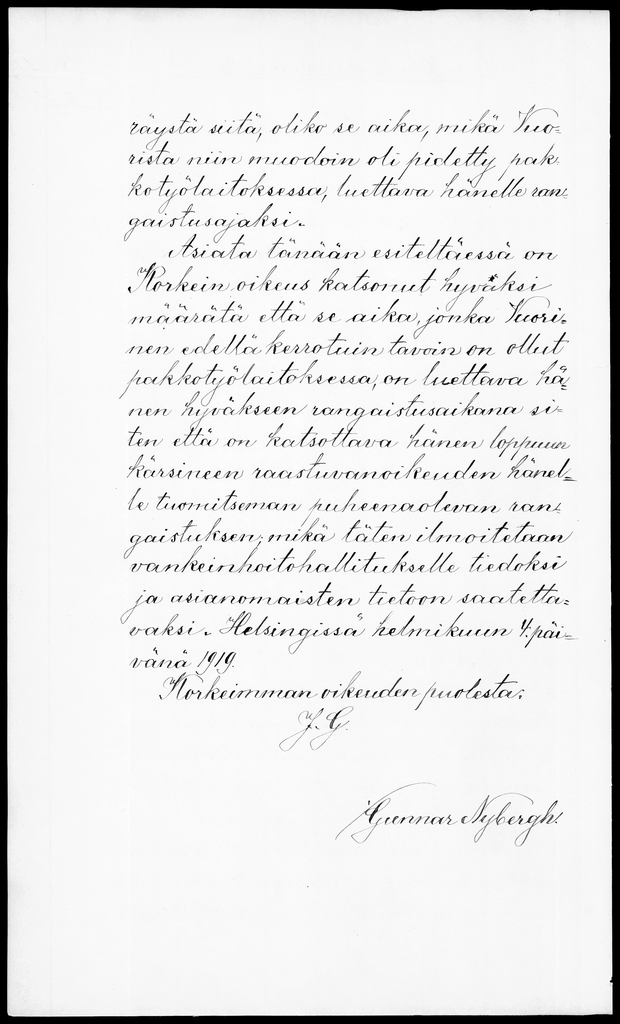 räystä siitä, oliko se aika, mikä Vuo=
rista niin muodoin oli pidetty pak=
kotyölaitoksessa, luettava hänelle ran=
gaistusajaksi.
Asiata tänään esiteltäessä on
Korkein oikeus katsonut hyväksi
määrätä että se aika, jonka Vuori=
nen edellä kerrotuin tavoin on ollut
pakkotyölaitoksessa, on luettava hä=
nen hyväkseen rangaistusaikana si=
ten että on katsottava hänen loppuun
kärsineen raastuvanoikeuden hänel=
le tuomitseman puheenaolevan ran=
gaistuksen; mikä täten ilmoitetaan
vankeinhoitohallitukselle tiedoksi
ja asianomaisten tietoon saatetta=
vaksi. Helsingissä helmikuun 4. päi=
vänä 1919.
Korkeimman oikeuden puolesta:
J. G.
Gunnar Nybergh.